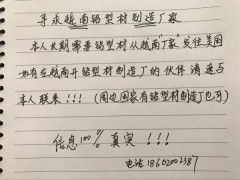 寻求越南铝型材制造厂家
本人长期需要铝型材从越南"厂家"发往美国
如有在越南开铝型材制造厂的伙伴请速与
本人联系!!!(周边国家有铝型材制造厂也可)
信息100%真实!!!
电话18602002387